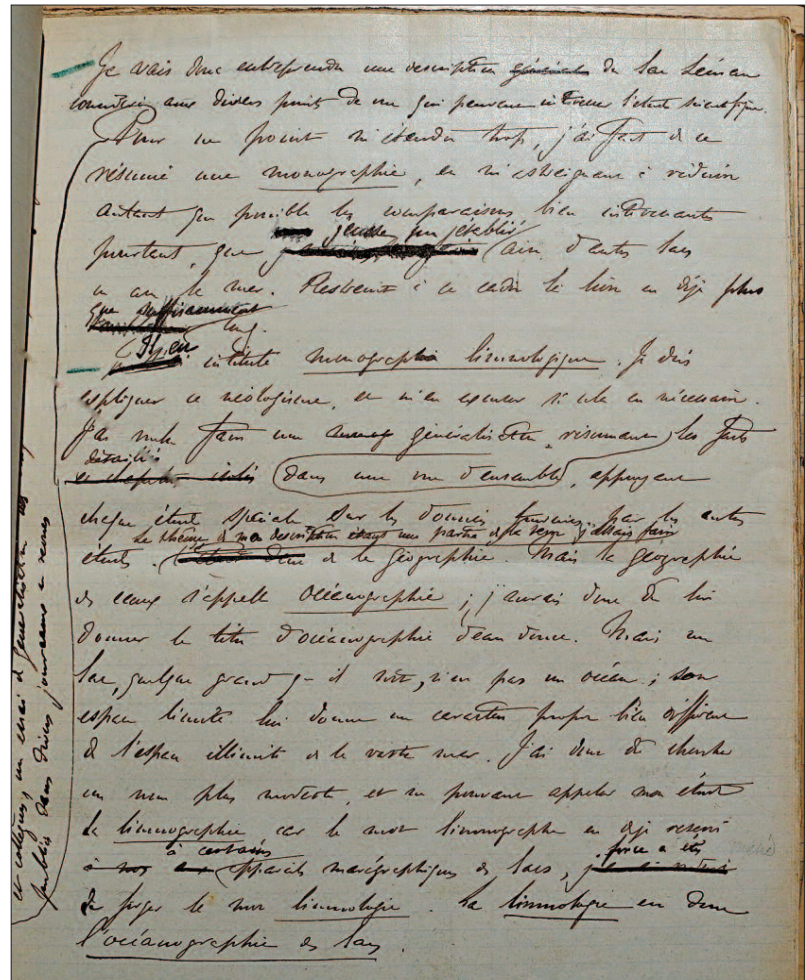 Je vais donc entreprendre une description générale du lac Léman
considéré aux divers points de vue qui peuvent intéresser l'étude scientifique.
Pour ne point m'étendre trop, j'ai fait de ce
résumé une monographie, en m'astreignant à réduire
autant que possible les comparaisons, bien intéressantes
pourtant, que j'eusse pu établir avec d'autres lacs
ou avec la mer. Restreint à ce cadre le livre est déjà plus
que suffisamment long.
intitulé monographie limnologique. Je dois
expliquer ce néologisme, et m'en excuser si cela est nécessaire.
J'ai voulu faire une généralisation, résumant les faits
détaillés dans une vue d'ensemble, appuyant
chaque étude spéciale sur les données fournies par les autres
le thème de ma description étant une partie de la terre j'allais faire
études. de la géographie. Mais la géographie
des eaux s'appelle océanographie ; j'aurais donc dû lui
donner le titre d'océanographie d'eau douce. Mais un
lac, quelque grand qu'il soit, n'est pas un océan ; son
espace limité lui donne un caractère propre bien différent
de l'espace illimité de la vaste mer. J'ai donc dû chercher
un nom plus modeste, et ne pouvant appeler mon étude
la limnographie, car le mot limnographe est déjà réservé
à certains appareils marégraphiques des lacs, force a été
de forger le mot limnologie. La limnologie est donc
l'océanographie des lacs.
et collègues, un essai de généralisation des
publiés dans divers journaux et revues